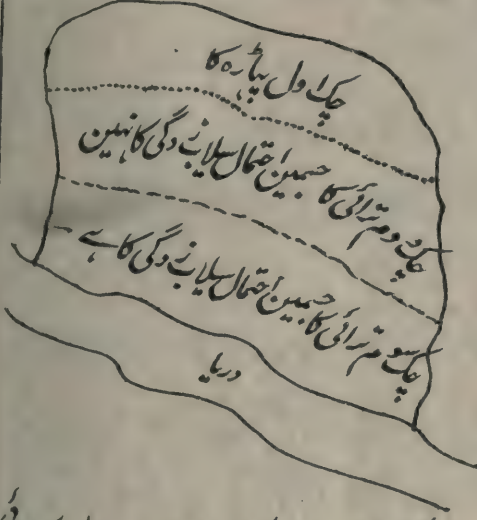 چک اول پہاڑہ کا
چک دویم ترائی کا جسمین احتمال سیلاب زدگی کا نہین
چک سویم ترائی کا جسمین احتمال سیلاب زدگی کا ہے
دریا